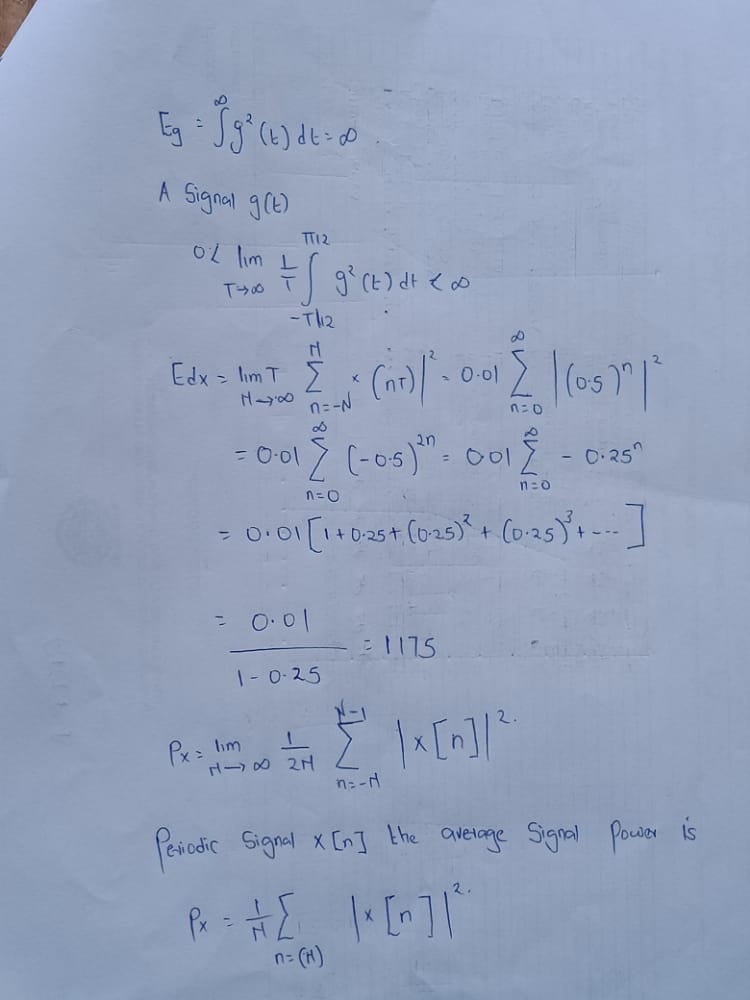 Eg = ∫^∞ g²(t) dt = ∞
A Signal g(t)
0 < lim T→∞ 1/T ∫_{-T/12}^{T/12} g²(t) dt < ∞
Edx = lim N→∞ T Σ_{n=-N}^{N} x(nT)|² = 0.01 Σ_{n=0}^{∞} |(0.5)ⁿ|²
= 0.01 Σ_{n=0}^{∞} (-0.5)²ⁿ = 0.01 Σ_{n=0}^{∞} - 0.25ⁿ
= 0.01 [1 + 0.25 + (0.25)² + (0.25)³ + ---]
= 0.01 / (1 - 0.25) = 1175
Px = lim N→∞ 1/2N Σ_{n=-N}^{N-1} |x[n]|².
Periodic Signal x[n] the average Signal Power is
Px = 1/N Σ_{n=(N)} |x[n]|².